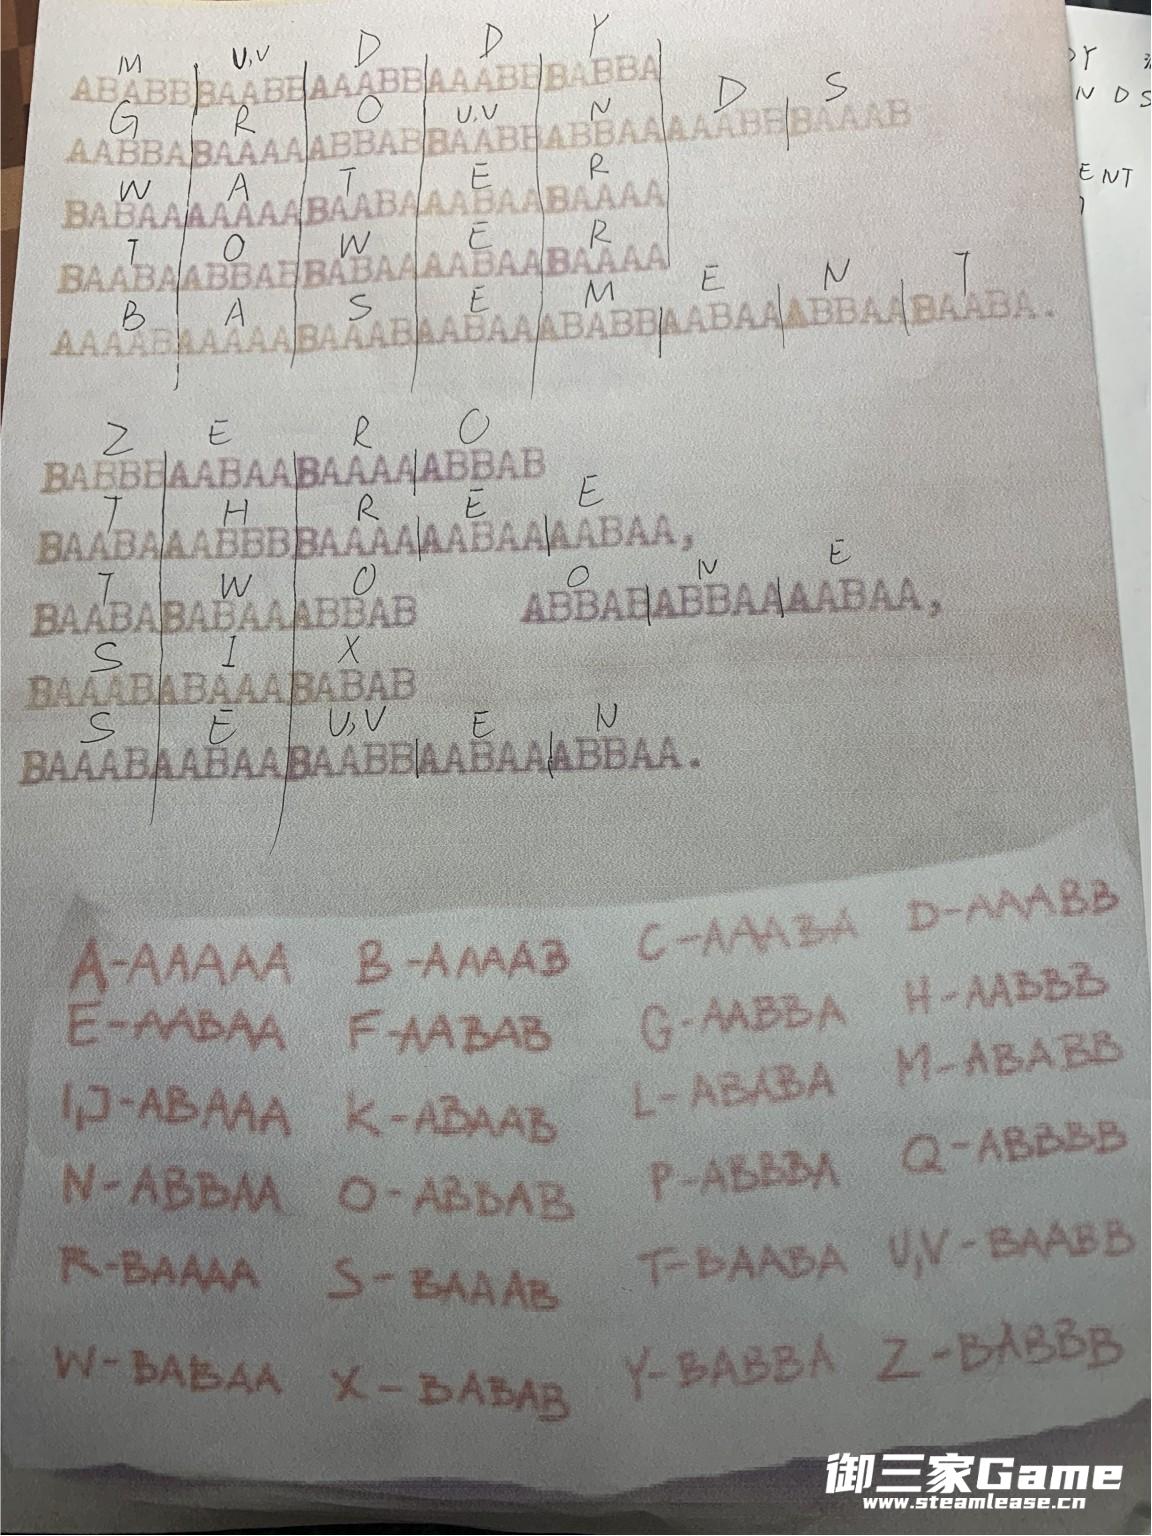 M U,V D D Y
ABABBBAABBAAABBAAABBBABBA
G R O U,V N D S
AABBABAAAAABBABBAABBABBAAAAABBBAAAB
W A T E R
BABAAAAAAABAABAAABAABAAAA
T O W E R
BAABAABBABBABAAAABAABAAAA
B A S E M E N T
AAAABAAAAABAAABAABAAABABBAABAAABBAABAABA.
Z E R O
BABBBAABAABAAAAABBAB
T H R E E
BAABAAABBBBAAAAAABAAAABAA,
T W O O N E
BAABABABAAABBAB ABBABABBAAAABAA,
S I X
BAAABABAAABABAB
S E U,V E N
BAAABAABAABAABBAABAAABBAA.
A-AAAAA B-AAAAB C-AAABA D-AAABB
E-AABAA F-AABAB G-AABBA H-AABBB
I,J-ABAAA K-ABAAB L-ABABA M-ABABB
N-ABBAA O-ABBAB P-ABBBA Q-ABBBB
R-BAAAA S-BAAAB T-BAABA U,V-BAABB
W-BABAA X-BABAB Y-BABBA Z-BABBB
NDS
ENT
御三家Game
www.steamlease.cn